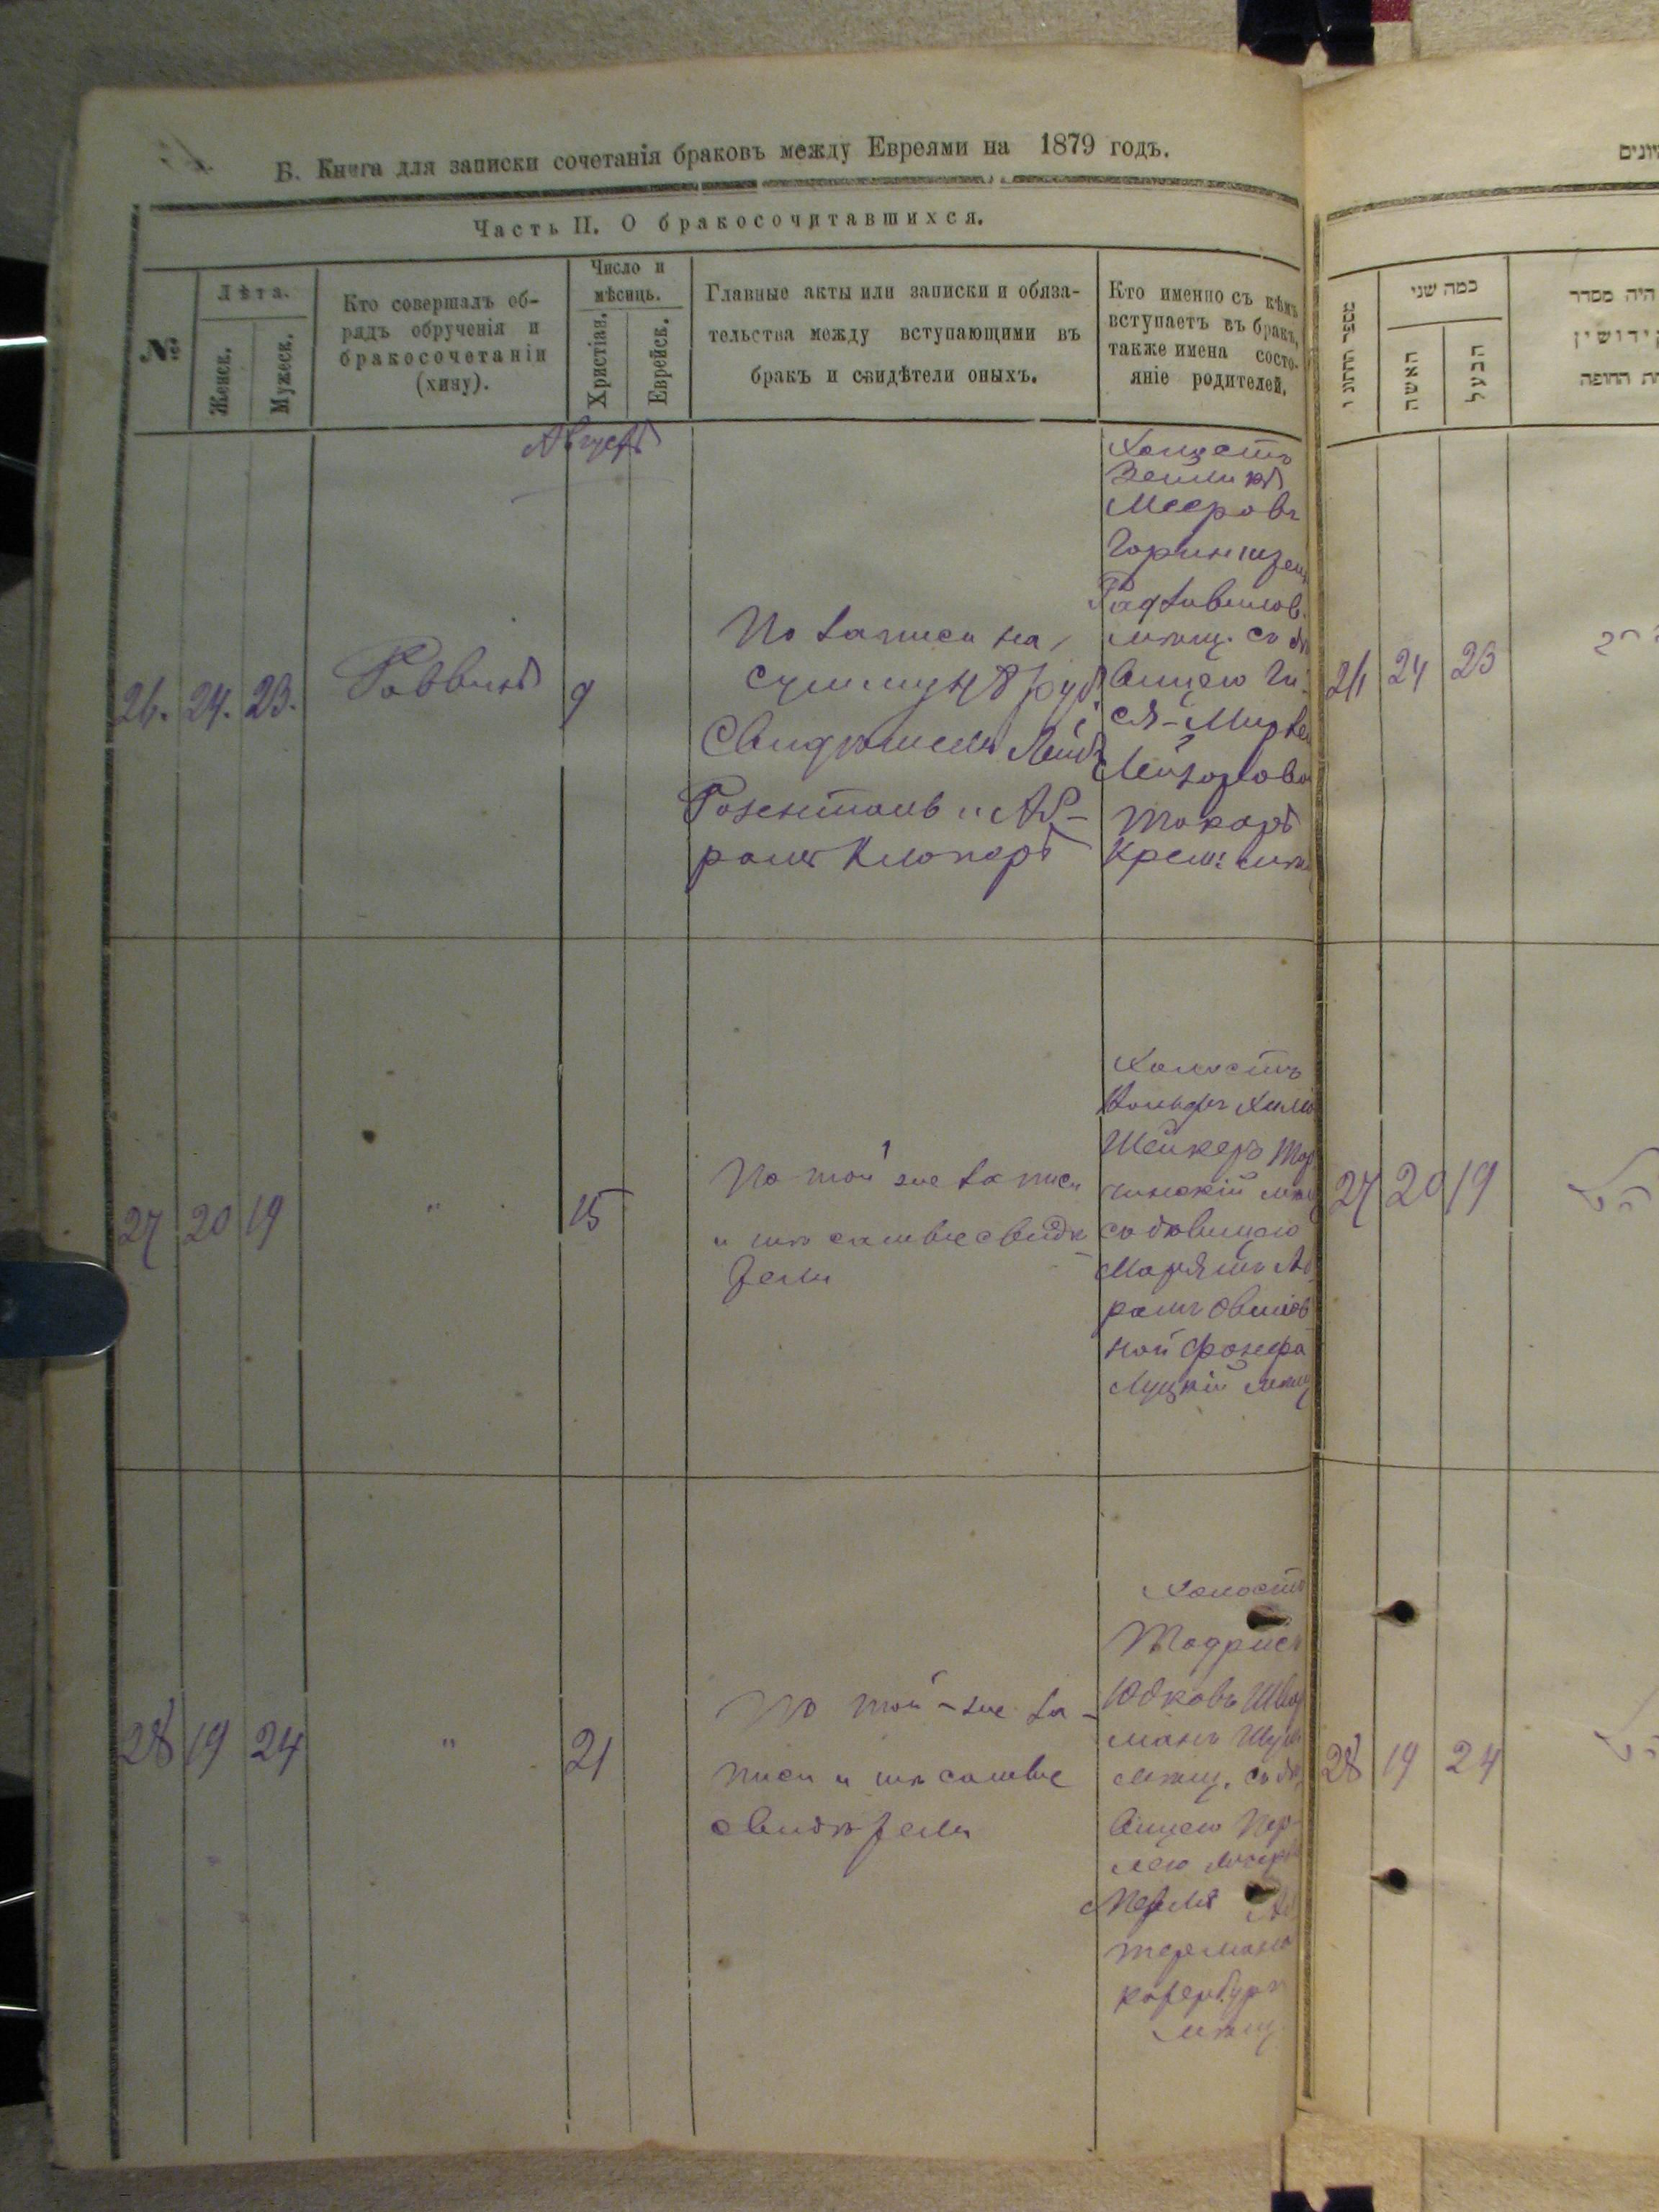 Б. Книга для записки сочетанія браковъ между Евреями на 1879 годъ.
Часть II. О бракосочитавшихся.
№
Лѣта.
Женск.
Мужеск.
Кто совершалъ об-
рядъ обрученія и
бракосочетаніи
(хину).
Число и
мѣсяць.
Христіан.
Еврейск.
Главные акты или записки и обяза-
тельства между вступающими въ
бракъ и свидѣтели оныхъ.
Кто именно съ кѣмъ
вступаетъ въ бракъ,
также имена состо-
яніе родителей.
Августъ
26. 24. 23.
Раввинъ
9
По записи на
сумму 48 руб.
Свидѣтели Лейбъ
Розенталь и Аб-
рамъ Клопоръ
Холостъ
Зейликъ
Мееровъ
Радзивилов.
мѣщ. съ дѣ
вицею Ги-
ся-Мирлей
Лейзорова
Токаръ
Крем: мѣщ
27 20 19
"
15
По той же записи
и тѣ самые свидѣ
тели
Холостъ
Вольфъ
Шейкеръ Тор
чинскій мѣщ
съ дѣвицею
Марьямъ Аб
рамъ
ной
Луцкій мѣщ
28 19 24
"
21
По той-же за-
писи и тѣ самые
свидѣтели
Холостъ
Тодрисъ
Юдковъ
манъ
мѣщ. съ дѣ
вицею Пер-
лею
терманъ
мѣщ.
מספר החתוני
כמה שני
האשה
הבעל
היה מסדר
קידושין
החופה
26 24 23
27 20 19
28 19 24